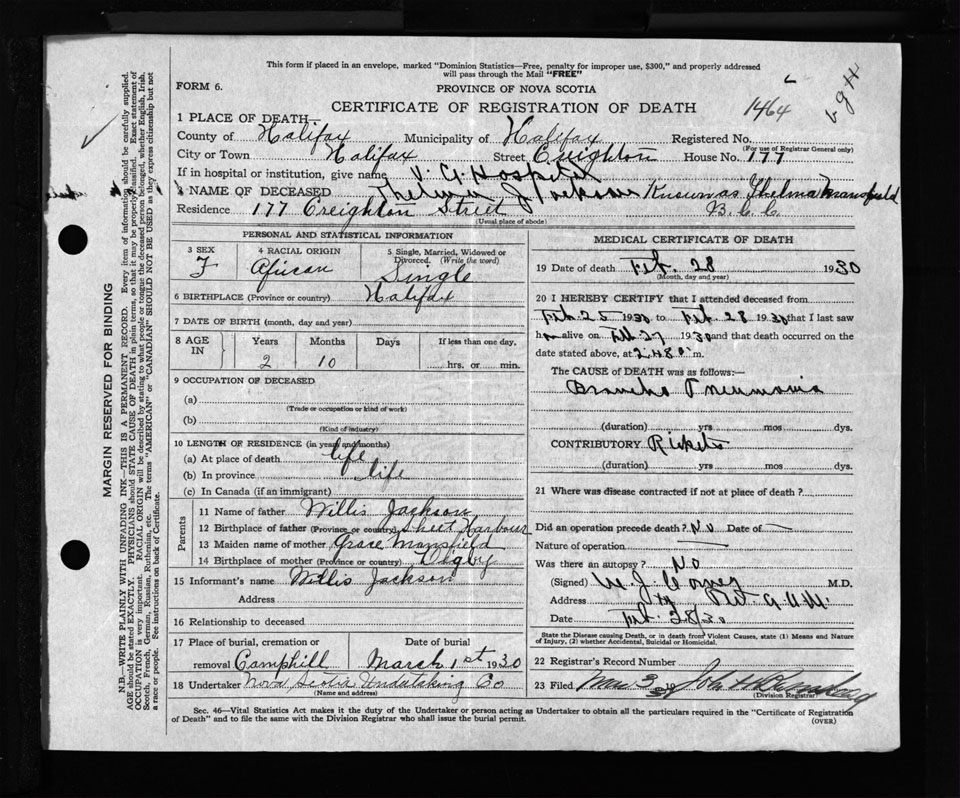 This form if placed in an envelope, marked "Dominion Statistics—Free, penalty for improper use, $300," and properly addressed
will pass through the Mail "FREE"
FORM 6.
PROVINCE OF NOVA SCOTIA
CERTIFICATE OF REGISTRATION OF DEATH
1464
1 PLACE OF DEATH—
County of Halifax Municipality of Halifax Registered No.
(For use of Registrar General only)
City or Town Halifax Street Creighton House No. 177
If in hospital or institution, give name V. G Hospital
3 NAME OF DECEASED Thelma J Jackson Thelma Mansfield
Residence 177 Creighton Street
(Usual place of abode)
PERSONAL AND STATISTICAL INFORMATION
3 SEX 4 RACIAL ORIGIN 5 Single, Married, Widowed or Divorced. (Write the word)
F African Single
6 BIRTHPLACE (Province or country) Halifax
7 DATE OF BIRTH (month, day and year)
8 AGE IN Years Months Days If less than one day,
2 10 hrs. or min.
9 OCCUPATION OF DECEASED
(a)
(Trade or occupation or kind of work)
(b)
(Kind of industry)
10 LENGTH OF RESIDENCE (in years and months)
(a) At place of death life
(b) In province life
(c) In Canada (if an immigrant)
Parents
11 Name of father Willis Jackson
12 Birthplace of father (Province or country) Sheet Harbour
13 Maiden name of mother Grace Mansfield
14 Birthplace of mother (Province or country) Digby
15 Informant's name Willis Jackson
Address
16 Relationship to deceased
17 Place of burial, cremation or Date of burial
removal Camphill March 1st 1930
18 Undertaker Nova Scotia Undertaking Co
(Name and address)
MEDICAL CERTIFICATE OF DEATH
19 Date of death Feb. 28 1930
(Month, day and year)
20 I HEREBY CERTIFY that I attended deceased from
Feb. 25 1930 to Feb. 28 1930 that I last saw
h alive on Feb 27 1930 and that death occurred on the
date stated above, at 2.48 m.
The CAUSE of DEATH was as follows:—
Broncho Pneumonia
(duration) yrs mos dys.
CONTRIBUTORY Rickets
(duration) yrs mos dys.
21 Where was disease contracted if not at place of death?
Did an operation precede death? No Date of —
Nature of operation —
Was there an autopsy? No
(Signed) M.D.
Address
Date Feb. 28/30
State the Disease causing Death, or in death from Violent Causes, state (1) Means and Nature
of Injury, (2) whether Accidental, Suicidal or Homicidal.
22 Registrar's Record Number
23 Filed Mar 3 19 30 John
(Division Registrar)
Sec. 46—Vital Statistics Act makes it the duty of the Undertaker or person acting as Undertaker to obtain all the particulars required in the "Certificate of Registration
of Death" and to file the same with the Division Registrar who shall issue the burial permit.
(OVER)
MARGIN RESERVED FOR BINDING
N.B.—WRITE PLAINLY WITH UNFADING INK—THIS IS A PERMANENT RECORD. Every item of information should be carefully supplied.
AGE should be stated EXACTLY. PHYSICIANS should STATE CAUSE OF DEATH in plain terms, so that it may be properly classified. Exact statement of
OCCUPATION is very important. RACIAL ORIGIN will be described by stating to what people or tongue the deceased person belonged, whether English, Irish,
Scotch, French, German, Russian, Ruthenian, etc. The terms "AMERICAN" or "CANADIAN" SHOULD NOT BE USED as they express citizenship but not
a race or people. See instructions on back of Certificate.